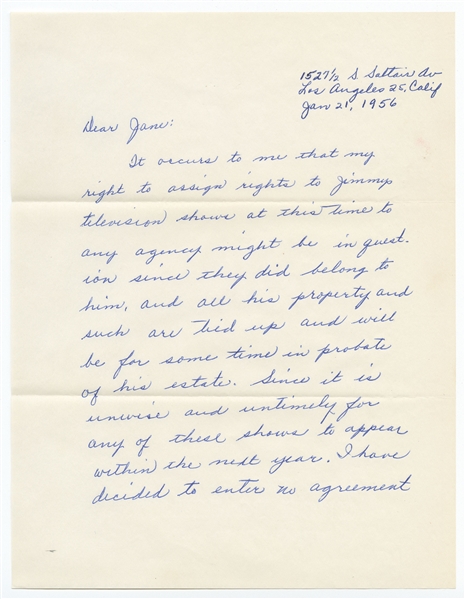 1527½ S Saltair Av
Los Angeles 25, Calif
Jan 21, 1956
Dear Jane:
It occurs to me that my
right to assign rights to Jimmys
television shows at this time to
any agency might be in quest.
ion since they did belong to
him, and all his property and
such are tied up and will
be for some time in probate
of his estate. Since it is
unwise and untimely for
any of these shows to appear
within the next year. I have
decided to enter no agreement